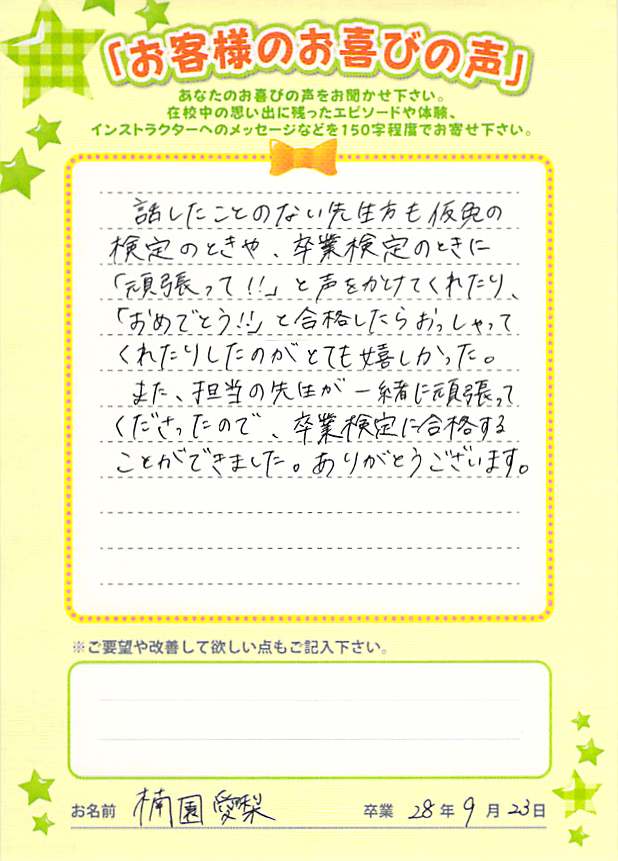 「お客様のお喜びの声」
あなたのお喜びの声をお聞かせ下さい。
在校中の思い出に残ったエピソードや体験、
インストラクターへのメッセージなどを150字程度でお寄せ下さい。
話したことのない先生方も仮免の
検定のときや、卒業検定のときに
「頑張って!!」と声をかけてくれたり、
「おめでとう!!」と合格したらおっしゃって
くれたりしたのがとても嬉しかった。
また、担当の先生が一緒に頑張って
くださったので、卒業検定に合格する
ことができました。ありがとうございます。
※ご要望や改善して欲しい点もご記入下さい。
お名前 楠園愛梨 卒業 28年9月23日